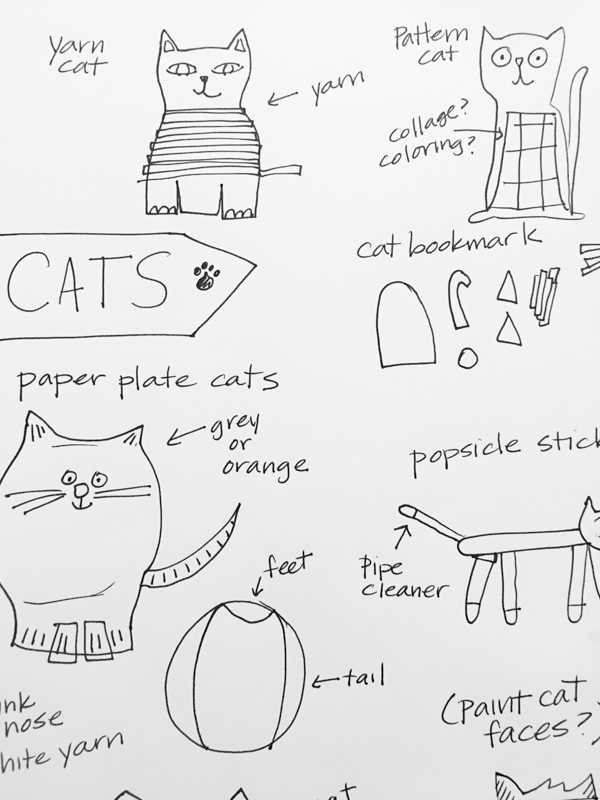 Yarn
cat
yarn
Pattern
cat
collage?
coloring?
CATS
cat bookmark
paper plate cats
grey
or
orange
popsicle stick
pipe
cleaner
feet
tail
nose
yarn
(paint cat
faces?)